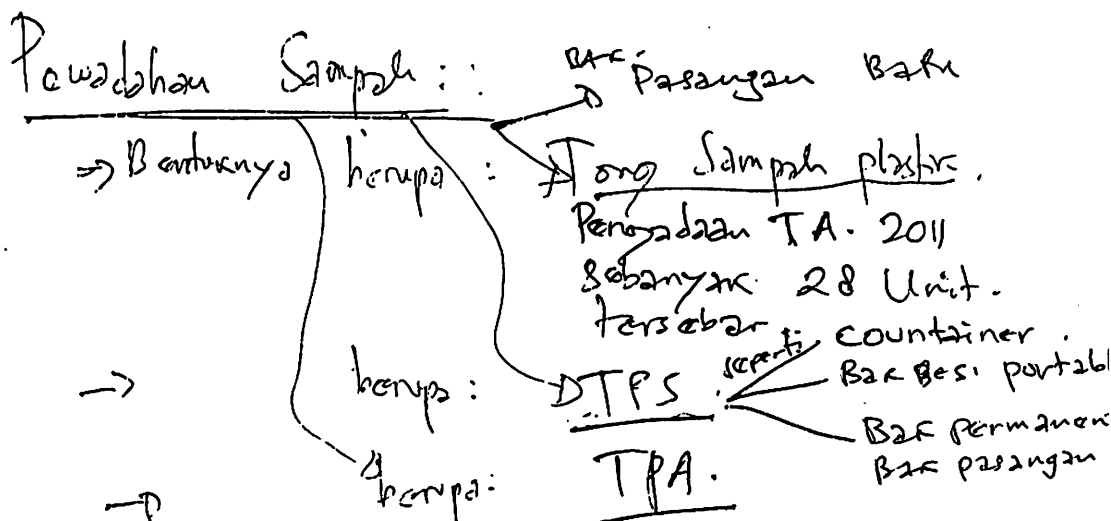 Pewadahan Sampah : : BAK : Pasangan BATA
⇒ Bentuknya berupa : Tong Sampah plastik.
Pengadaan TA. 2011
Sebanyak 28 Unit.
tersebar
→ berupa : TPS seperti : countainer.
Bak Besi portabl
Bak permanen
Bak pasangan
→ berupa : TPA.